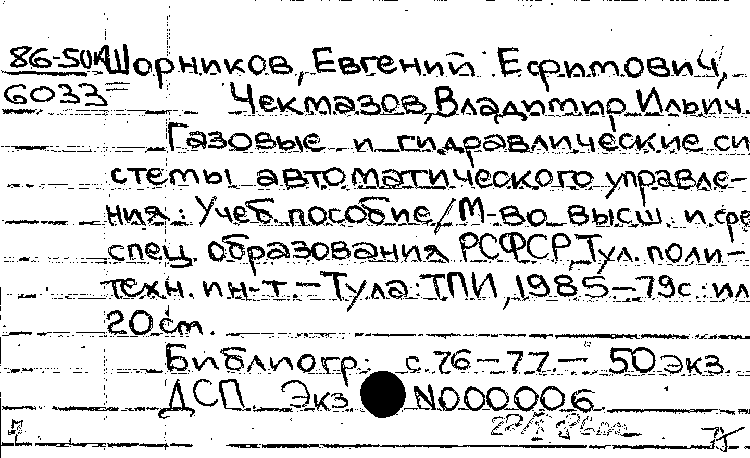 86-50к Шорников, Евгений Ефимович,
6033 Чекмазов, Владимир Ильич.
Газовые и гидравлические си
стемы автоматического управле-
ния: Учеб. пособие/М-во высш. и сре
спец. образования РСФСР, Тул. поли-
техн. ин-т. - Тула: ТПИ, 1985 - 79с.: ил
20 см.
Библиогр: с. 76-77. - 50 экз
ДСП Экз N000006